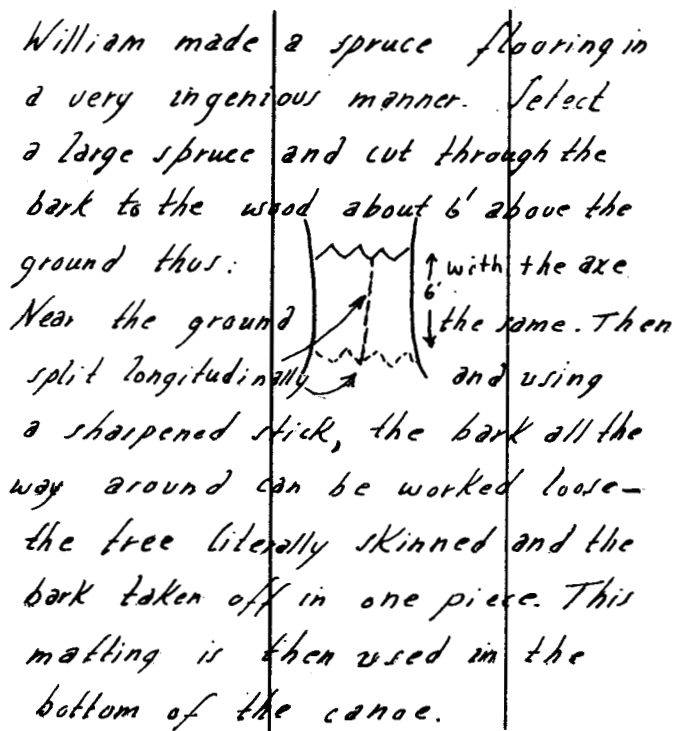 William made a spruce flooring in
a very ingenious manner. Select
a large spruce and cut through the
bark to the wood about 6' above the
ground thus: with the axe
6'
Near the ground the same. Then
split longitudinally and using
a sharpened stick, the bark all the
way around can be worked loose—
the tree literally skinned and the
bark taken off in one piece. This
matting is then used in the
bottom of the canoe.